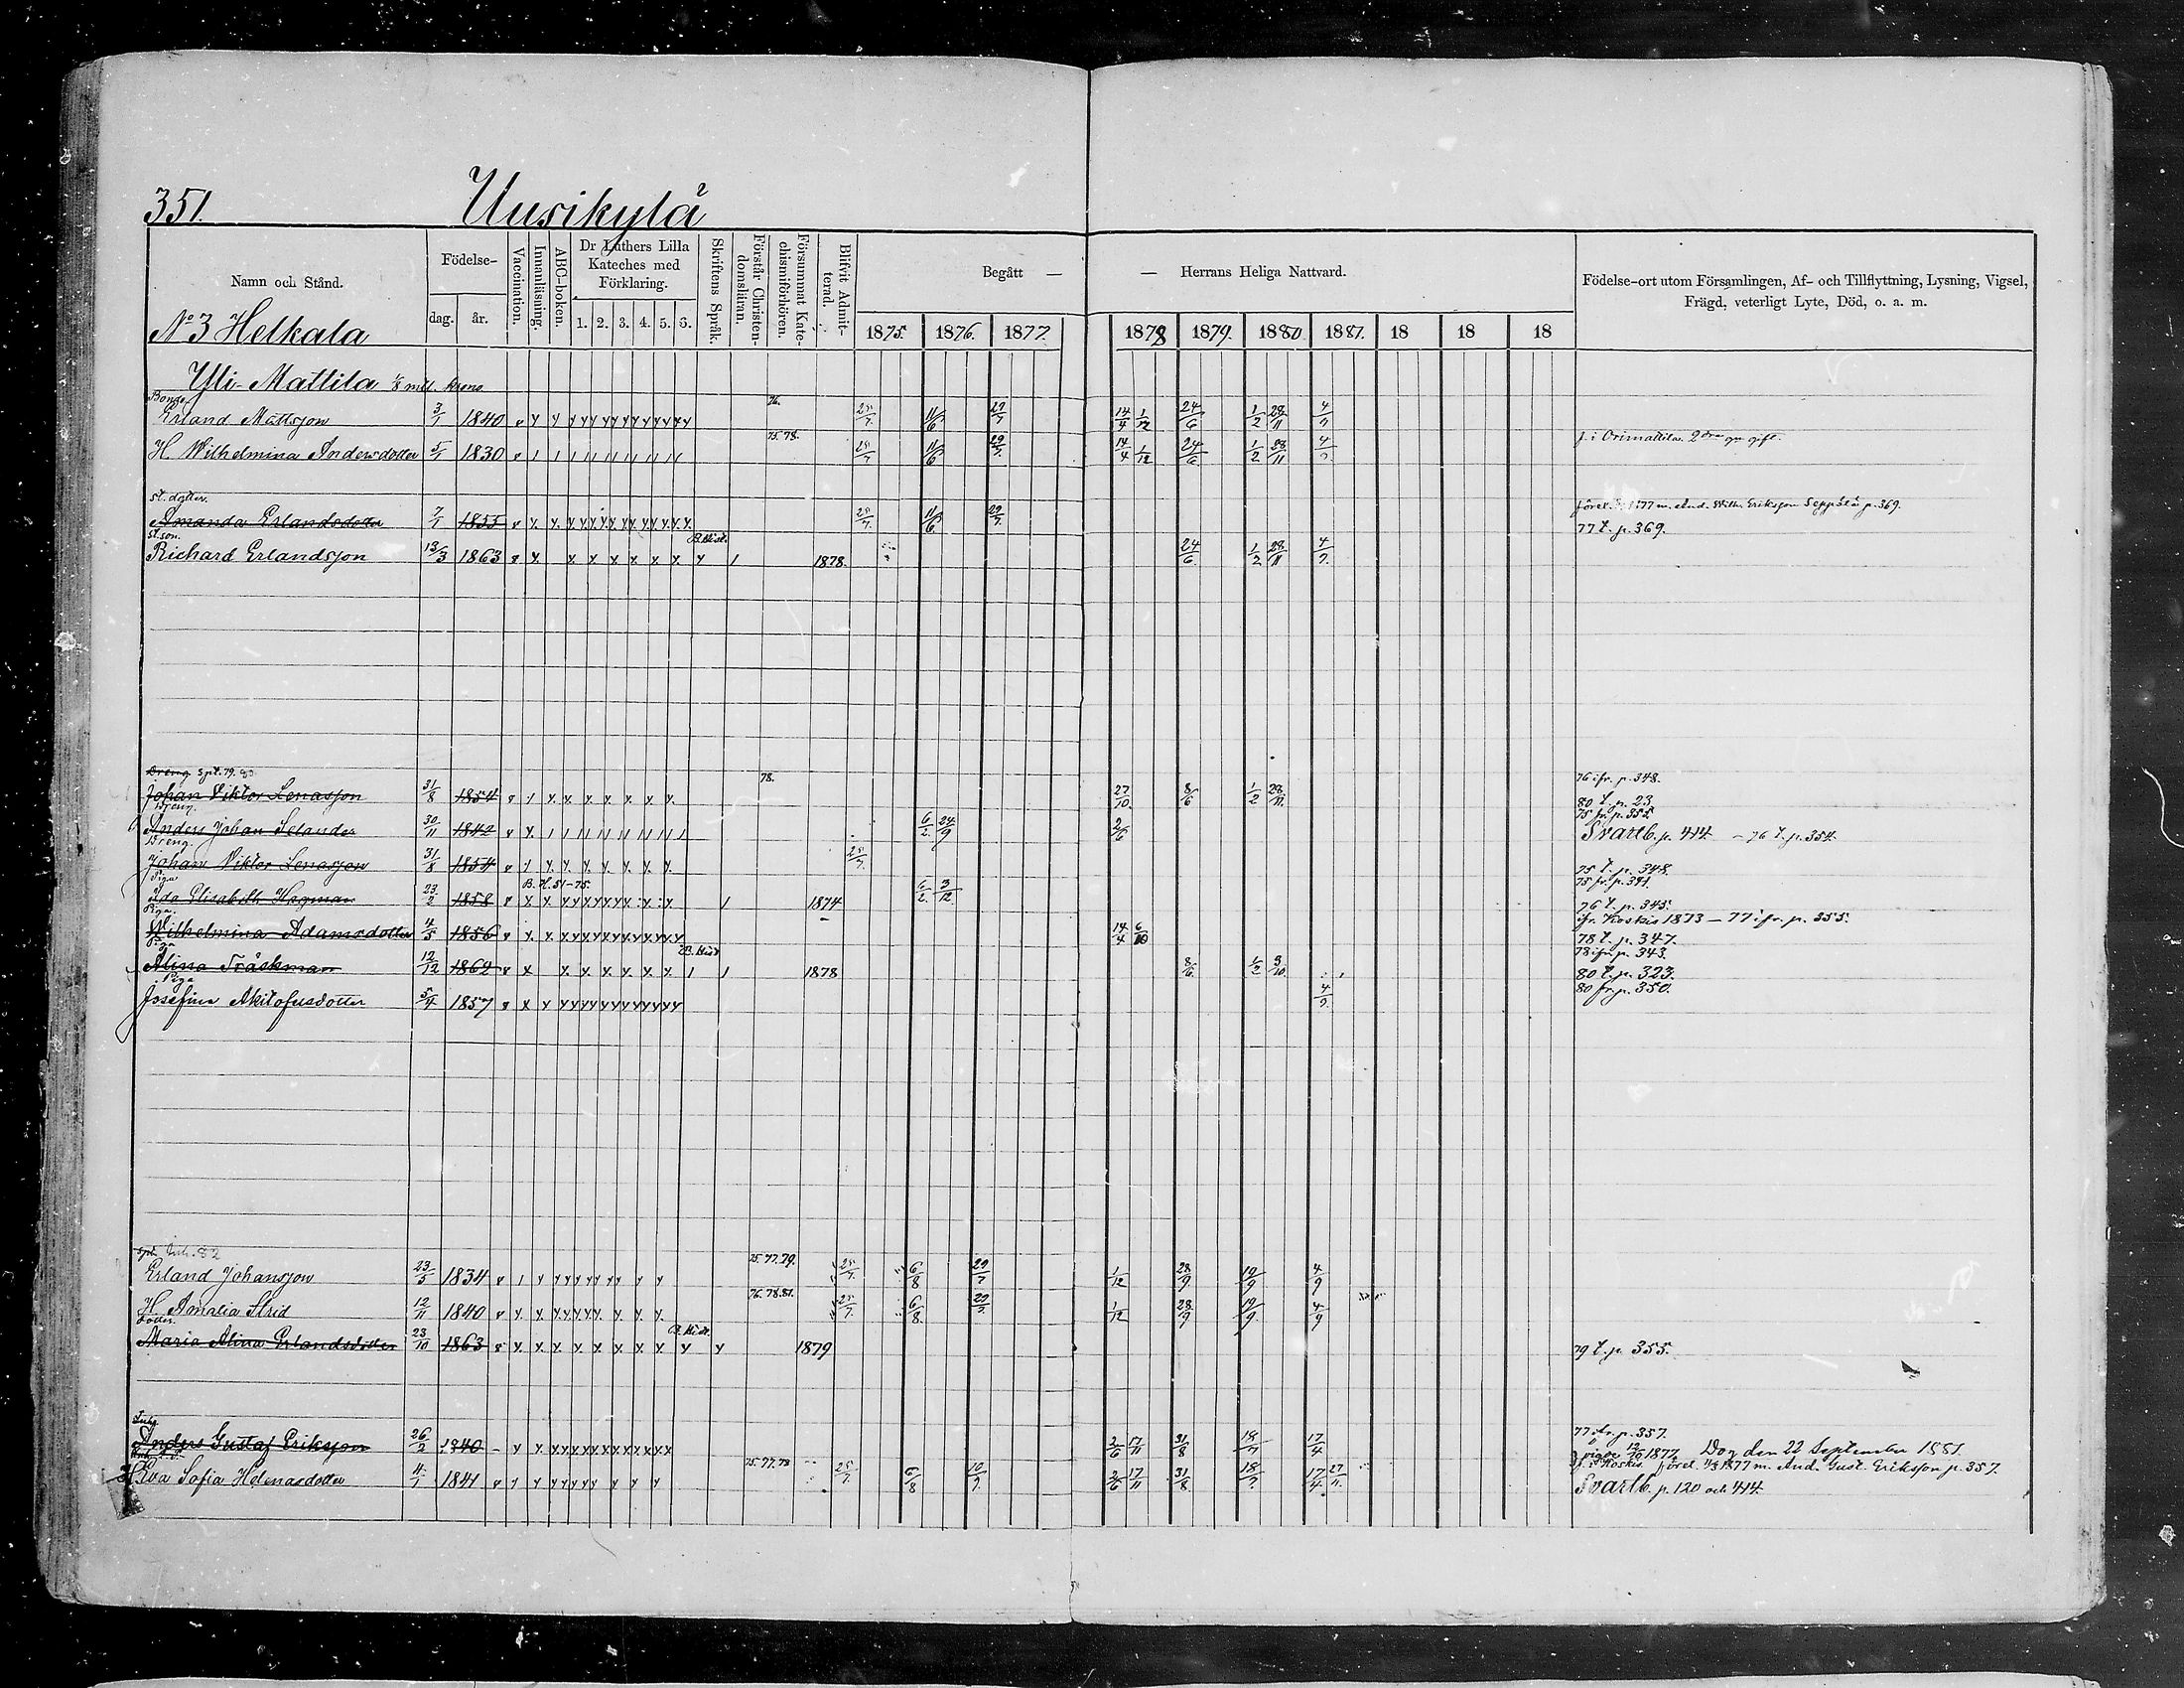 351. Uusikylä
Namn och Stånd. Födelse- dag. år. Vaccination. Innanläsning. ABC-boken. Dr Luthers Lilla Kateches med Förklaring. 1. 2. 3. 4. 5. 6. Skriftens Språk. Förstår Christendomsläran. Försummat Katechismiförhören. Blifvit Admitterad. Begått — — Herrans Heliga Nattvard. Födelse-ort utom Församlingen, Af- och Tillflyttning, Lysning, Vigsel, Frägd, veterligt Lyte, Död, o. a. m.
1875. 1876. 1877. 1878 1879. 1880 1881. 18 18 18
No 3 Helkala
Yli-Mattila 1/8 mtl. krono
Bonde 76.
Erland Mattsson 3/1 1840 25/7. 11/6 29/7 14/4 1/12 24/6 1/2 28/11 4/9
75. 78. f. i Orimattila. 2dra ggr gift.
H. Wilhelmina Andersdotter 5/1 1830 25/7 11/6 29/7. 14/4 1/12 24/6 1/2 28/11 4/9.
st. dotter. förel. 1877 m. And. Wilh. Eriksson Seppälä p. 369.
Amanda Erlandsdotter 7/1 1855 25/7. 11/6 29/7 77 t. p. 369.
st. son. B. Hist.
Richard Erlandsson 13/3 1863 1878. 24/6. 1/2 28/11 4/9.
Dreng Spt. 79. 80. 78. 76 ifr. p. 348.
Johan Viktor Lenasson 31/8 1854 27/10. 8/6 1/2 28/11. 80 t. p. 23
Dreng. 75 fr. p. 355.
Anders Johan Selander 30/11 1842 6/2. 24/9 2/6 Svartb. p. 414 — 76 t. p. 354.
Dreng.
Johan Viktor Lenasson 31/8 1854 25/7. 75 t. p. 348.
Piga B. H. 51-75. 75 fr. p. 391.
Ida Elisabeth Hagman 23/2 1858 1874 6/2. 3/12. 76 t. p. 345.
Piga. ifr. Koskis 1873 — 77 ifr. p. 355.
Wilhelmina Adamsdotter 4/5 1856 14/4 6/10 78 t. p. 347.
Piga B. Hist 78 ifr. p. 343.
Alina Träskman 12/12 1862 1878 8/6. 1/2 3/10. 80 t. p. 323.
Piga 80 fr. p. 350.
Josefina Akitofusdotter 5/4 1857 4/9.
Inh. 82 75. 77. 79.
Erland Johansson 23/5 1834 25/7. 6/8 29/7 1/12 28/9 19/9 4/9
76. 78. 81.
H. Amalia Strid 12/11 1840 25/7. 6/8. 29/7. 1/12 28/9 19/9. 4/9
Dotter. B. Hist.
Maria Alina Erlandsdotter 23/10 1863 1879 79 t. p. 355.
Inhg. 77 fr. p. 357.
Anders Gustaf Eriksson 26/2 1840 2/6 17/11 31/8 18/7 17/4 vigde 1877. Dog den 22 September 1881.
75. 77. 78 f. i Koskis förel. 1877 m. And. Gust. Eriksson p. 357.
Eva Sofia Helenasdotter 4/1 1841 25/7. 6/8 10/9. 2/6 17/11 31/8 18/7 17/4. 27/11. Svartb. p. 120 och 414.